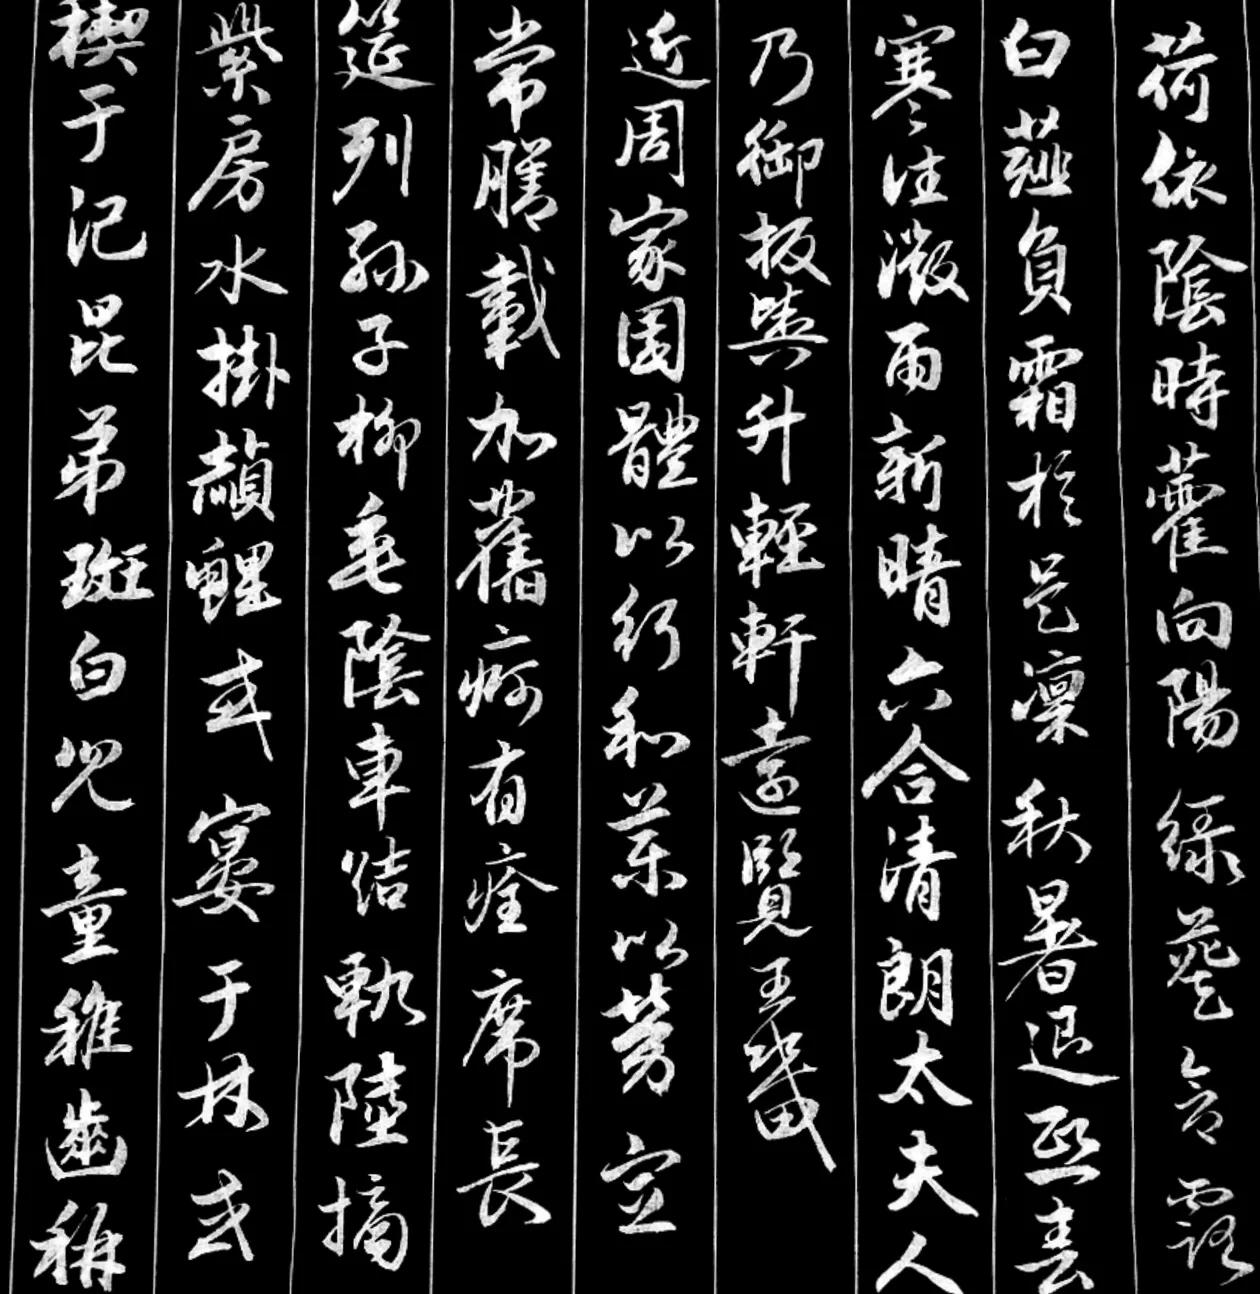 荷依陰時藿向陽綠葵含露
白薤負霜於是凜秋暑退熙春
寒往微雨新晴六合清朗太夫人
乃御板輿升輕軒遠覽王畿
近周家園體以行和藥以勞宣
常膳載加舊痾有痊席長
筵列孫子柳垂陰車結軌陸摘
紫房水掛赬鯉或宴于林或
禊于汜昆弟斑白兒童稚齒稱